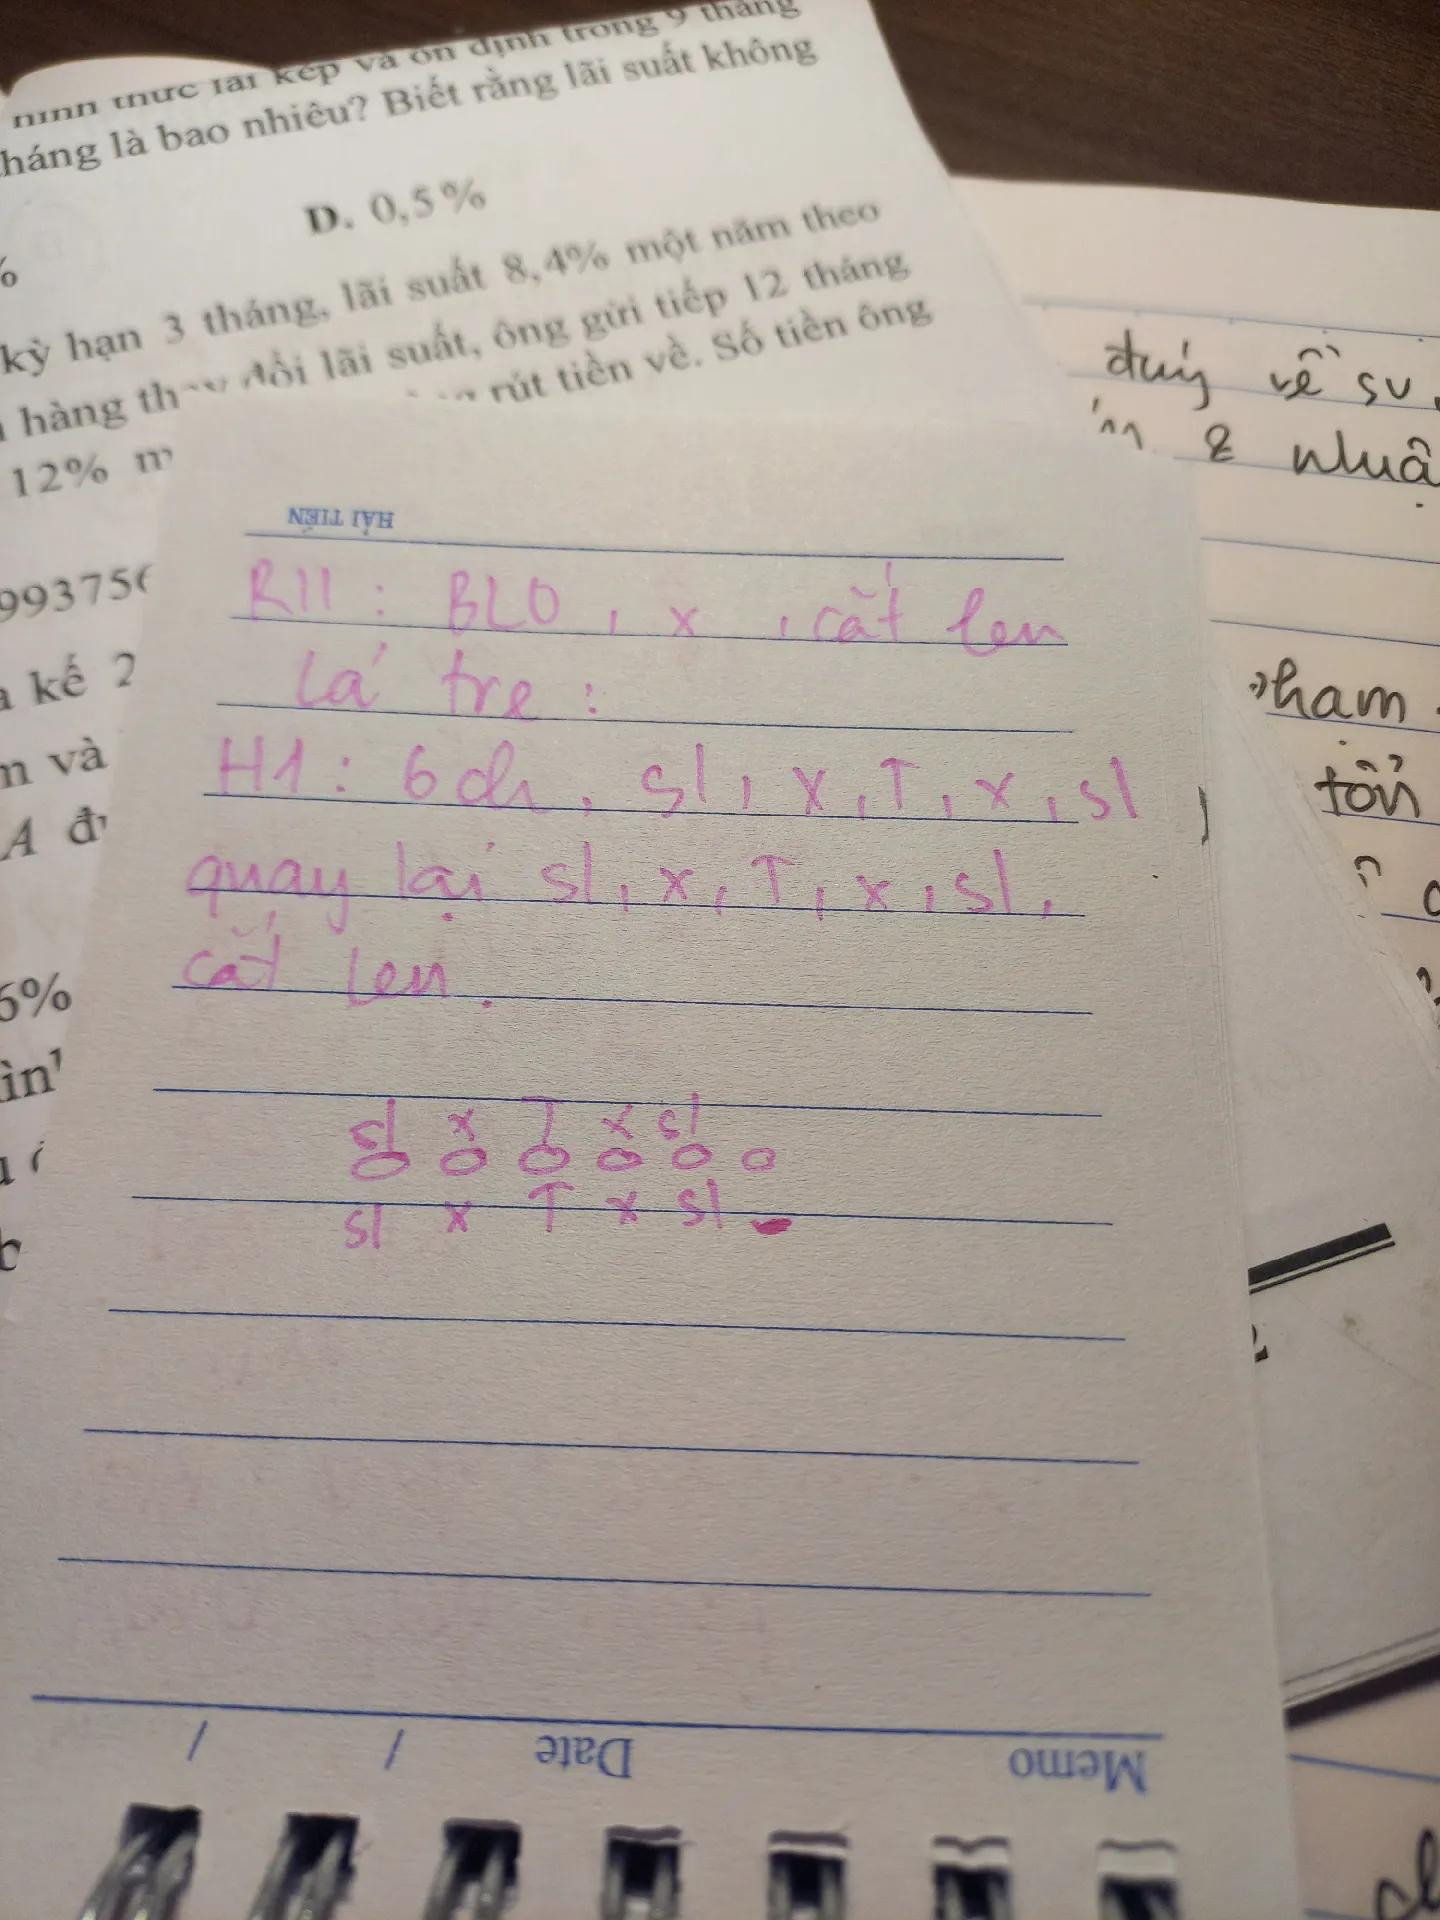 hình thức lãi kép và ổn định trong 9 tháng
tháng là bao nhiêu? Biết rằng lãi suất không
%
D. 0,5%
kỳ hạn 3 tháng, lãi suất 8,4% một năm theo
hàng thay đổi lãi suất, ông gửi tiếp 12 tháng
12% rút tiền về. Số tiền ông
đúng về
2 nhuậ
HẢI TIẾN
R11 : BLO , x , cắt len
Lá tre :
H1 : 6ch , sl , x , T , x , sl
quay lại sl , x , T , x , sl ,
cắt len .
sl x T x sl
sl x T x sl
99375
kế 2
và
A
6%
ham
tổn
Memo Date / /